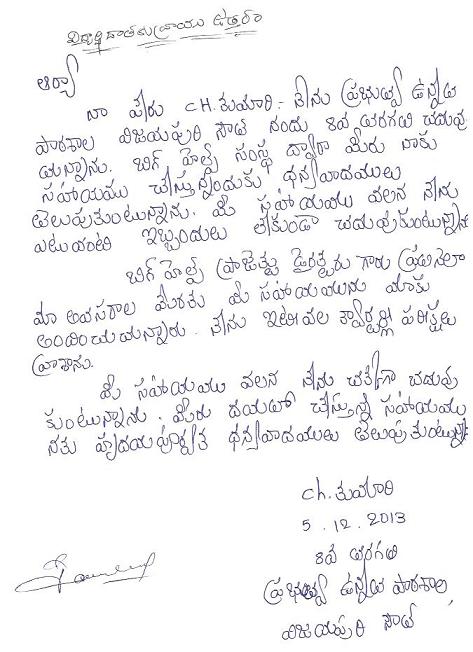 విద్యార్థి దాతకు వ్రాయు ఉత్తరం
ఆర్యా
నా పేరు CH. కుమారి. నేను ప్రభుత్వ ఉన్నత
పాఠశాల విజయపురి సౌత్ నందు 8వ తరగతి చదువు
తున్నాను. బిగ్ హెల్ప్ సంస్థ ద్వారా మీరు నాకు
సహాయము చేస్తున్నందుకు ధన్యవాదములు
తెలుపుకుంటున్నాను. మీ సహాయము వలన నేను
ఎటువంటి ఇబ్బందులు లేకుండా చదువుకుంటున్నాను
బిగ్ హెల్ప్ ప్రాజెక్టు డైరెక్టరు గారు ప్రతినెలా
మా అవసరాల మేరకు మీ సహాయమును మాకు
అందించుచున్నారు. నేను ఇటీవల క్వార్టర్లి పరీక్షలు
వ్రాశాను.
మీ సహాయము వలన నేను చక్కగా చదువు
కుంటున్నాను. మీరు దయతో చేస్తున్న సహాయము
నకు హృదయపూర్వక ధన్యవాదములు తెలుపుకుంటున్నా
ch. కుమారి
5.12.2013
8వ తరగతి
ప్రభుత్వ ఉన్నత పాఠశాల,
విజయపురి సౌత్